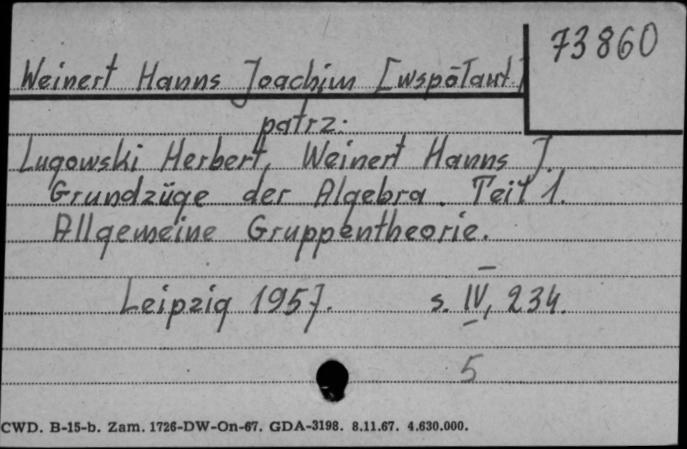 73860
Weinert Hanns Joachim [współaut.]
patrz:
Lugowski Herbert, Weinert Hanns J.
Grundzüge der Algebra. Teil 1.
Allgemeine Gruppentheorie.
Leipzig 1957. s. IV, 234.
5
CWD. B-15-b. Zam. 1726-DW-On-67. GDA-3198. 8.11.67. 4.630.000.